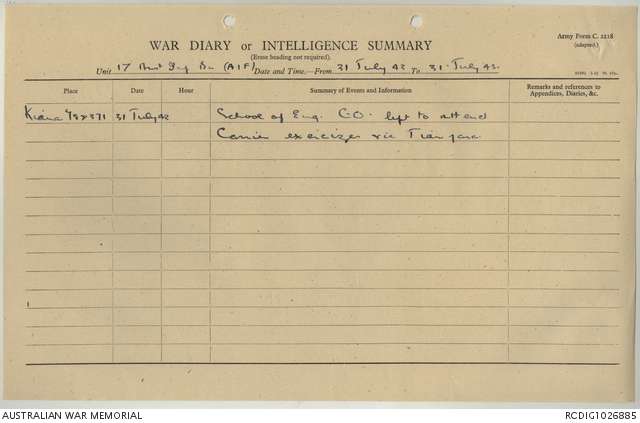 Army Form C. 2118
(adapted.)
WAR DIARY or INTELLIGENCE SUMMARY
(Erase heading not required).
Unit 17 Aust Inf Bn (AIF) Date and Time.—From 31 July 42 To 31 July 42.
Place Date Hour Summary of Events and Information Remarks and references to
Appendices, Diaries, &c.
31 July 42 School of Eng. CO. left to attend
Carrier exercizes
AUSTRALIAN WAR MEMORIAL RCDIG1026885